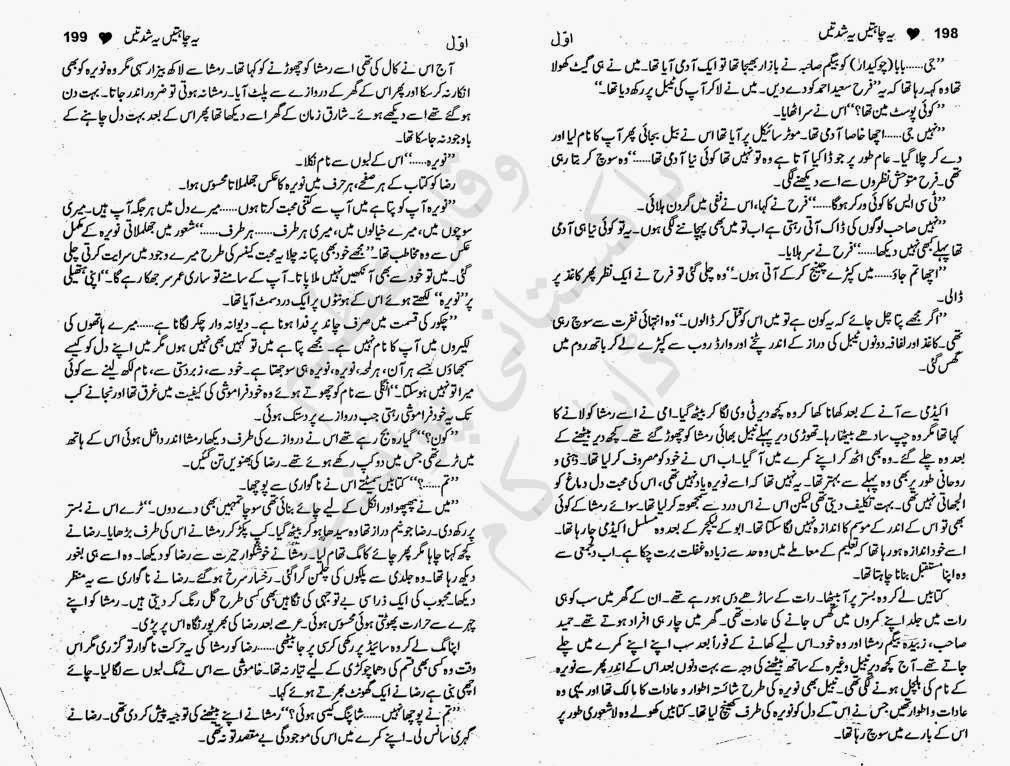 198 ♥ یہ چاہتیں یہ شدتیں
اوّل
”جی......بابا (چوکیدار) کو بیگم صاحبہ نے بازار بھیجا تھا تو ایک آدمی آیا تھا۔ میں نے ہی گیٹ کھولا
تھا وہ کہہ رہا تھا کہ یہ ”فرح سعید احمد کو دے دیں۔ میں نے لا کر آپ کی ٹیبل پر رکھ دیا تھا۔“
”کوئی پوسٹ مین تھا؟“ اس نے سر اٹھایا۔
”نہیں جی......اچھا خاصا آدمی تھا۔ موٹر سائیکل پر آیا تھا اس نے بیل بجائی پھر آپ کا نام لیا اور
دے کر چلا گیا۔ عام طور پر جو ڈاکیا آتا ہے وہ تو نہیں تھا کوئی نیا آدمی تھا......“ وہ سوچ کر بتا رہی
تھی۔ فرح متوحش نظروں سے اسے دیکھنے لگی۔
”ٹی سی ایس کا کوئی ورکر ہوگا......“ فرح نے کہا، اس نے نفی میں گردن ہلائی۔
”نہیں صاحب لوگوں کی ڈاک آتی رہتی ہے اب تو میں بھی پہچاننے لگی ہوں۔ یہ تو کوئی نیا ہی آدمی
تھا پہلے کبھی نہیں دیکھا......“ فرح نے سر ہلایا۔
”اچھا تم جاؤ......میں کپڑے چینج کر کے آتی ہوں۔“ وہ چلی گئی تو فرح نے ایک نظر پھر کاغذ پر
ڈالی۔
”اگر مجھے پتا چل جائے کہ یہ کون ہے تو میں اس کو قتل کر ڈالوں۔“ وہ انتہائی نفرت سے سوچ رہی
تھی۔ کاغذ اور لفافہ دونوں ٹیبل کی دراز کے اندر پٹخے اور وارڈ روب سے کپڑے لے کر باتھ روم میں
گھس گئی۔
اکیڈمی سے آنے کے بعد کھانا کھا کر وہ کچھ دیر ٹی وی لگا کر بیٹھ گیا۔ امی نے اسے رمشا کو لانے کا
کہا تھا مگر وہ چپ سادھے بیٹھا رہا۔ تھوڑی دیر پہلے نبیل بھائی رمشا کو چھوڑ گئے تھے۔ کچھ دیر بیٹھنے کے
بعد وہ چلے گئے۔ وہ بھی اٹھ کر اپنے کمرے میں آ گیا۔ اب اس نے خود کو مصروف کر لیا تھا۔ ذہنی و
روحانی طور پر بھی وہ پہلے سے بہتر تھا۔ یہ نہیں تھا کہ اسے نویرہ یاد نہیں تھی، اس کی محبت دل دماغ کو
الجھاتی نہیں تھی۔ بہت تکلیف دیتی تھی لیکن اس نے اس درد سے سمجھوتہ کر لیا تھا۔ سوائے رمشا کے کوئی
بھی تو اس کے اندر کے موسم کا اندازہ نہیں لگا سکتا تھا۔ ابو کے لیکچر کے بعد وہ مسلسل اکیڈمی جا رہا تھا۔
اسے خود اندازہ ہو رہا تھا کہ تعلیم کے معاملے میں وہ حد سے زیادہ غفلت برت چکا ہے۔ اب دلجمعی سے
وہ اپنا مستقبل بنانا چاہتا تھا۔
کتابیں لے کر وہ بستر پر آ بیٹھا۔ رات کے ساڑھے دس ہو رہے تھے۔ ان کے گھر میں سب کو ہی
رات میں جلد اپنے کمروں میں گھس جانے کی عادت تھی۔ گھر میں چار ہی افراد ہوتے تھے۔ حمید
صاحب، زبیدہ بیگم رمشا اور وہ خود۔ اس لیے کھانے کے فوراً بعد سب اپنے اپنے کمرے میں چلے
جاتے تھے۔ آج کچھ دیر نبیل وغیرہ کے ساتھ بیٹھنے کی وجہ سے بہت دنوں بعد اس کے اندر پھر سے نویرہ
کے نام کی ہلچل ہونے لگی تھی۔ نبیل بھی نویرہ کی طرح شائستہ اطوار و عادات کا مالک تھا اور یہی وہ
عادات و اطوار تھیں جس نے اس کے دل کو نویرہ کی طرف کھینچ لیا تھا۔ کتابیں کھولے وہ لاشعوری طور پر
اس کے بارے میں سوچ رہا تھا۔
یہ چاہتیں یہ شدتیں ♥ 199
اوّل
آج اس نے کال کی تھی اسے رمشا کو چھوڑنے کو کہا تھا۔ رمشا سے لاکھ بیزار سہی مگر وہ نویرہ کو بھی
انکار نہ کر سکا اور پھر اس کے گھر کے دروازے سے پلٹ آیا۔ رمشا نہ ہوتی تو ضرور اندر جاتا۔ بہت دن
ہو گئے تھے اسے دیکھے ہوئے۔ شارق زمان کے گھر اسے دیکھا تھا پھر اس کے بعد بہت دل چاہنے کے
باوجود نہ جا سکا تھا۔
”نویرہ......“ اس کے لبوں سے نام نکلا۔
رضا کو کتاب کے ہر صفحے، ہر حرف میں نویرہ کا عکس جھلملاتا محسوس ہوا۔
”نویرہ آپ کو پتا ہے میں آپ سے کتنی محبت کرتا ہوں......میرے دل میں ہر جگہ آپ ہیں۔ میری
سوچوں میں، میرے خیالوں میں، میری ہر طرف......ہر طرف......“ شعور میں جھلملاتی نویرہ کے مکمل
عکس سے وہ مخاطب تھا۔ ”مجھے خود بھی پتا نہ چلا یہ محبت کینسر کی طرح میرے وجود میں سرایت کرتی چلی
گئی۔ میں تو خود سے بھی آنکھیں نہیں ملا پاتا۔ آپ کے سامنے تو ساری عمر سر جھکا رہے گا۔“ اپنی ہتھیلی
پر ”نویرہ“ لکھتے ہوئے اس کے ہونٹوں پر ایک درد سمٹ آیا تھا۔
”چکور کی قسمت میں صرف چاند پر فدا ہونا ہے۔ دیوانہ وار چکر لگانا ہے......میرے ہاتھوں کی
لکیروں میں آپ کا نام نہیں ہے۔ مجھے پتا ہے میں تو کہیں بھی نہیں ہوں مگر میں اپنے دل کو کیسے
سمجھاؤں جسے ہر آن، ہر لمحہ، نویرہ، نویرہ ہی سوجھتا ہے۔ خود سے، زبردستی سے، نام لکھ لینے سے کوئی
میرا تو نہیں ہو سکتا۔“ انگلی سے نام کو چھوتے ہوئے وہ خود فراموشی کی کیفیت میں غرق تھا اور نجانے کب
تک یہ خود فراموشی رہتی جب دروازے پر دستک ہوئی۔
”کون؟“ گیارہ بج رہے تھے اس نے دروازے کی طرف دیکھا رمشا اندر داخل ہوئی اس کے ہاتھ
میں ٹرے تھی جس میں دو کپ رکھے ہوئے تھے۔ رضا کی بھنویں تن گئیں۔
”تم......؟“ کتابیں سمیٹتے اس نے ناگواری سے پوچھا۔
”میں نے پھپھو اور انکل کے لیے چائے بنائی تھی سوچا تمہیں بھی دے دوں۔“ ٹرے اس نے بستر
پر رکھ دی۔ رضا جو نیم دراز تھا وہ سیدھا ہو کر بیٹھ گیا۔ کپ پکڑ کر رمشا نے اس کی طرف بڑھایا۔ رضا نے
کچھ کہنا چاہا مگر پھر چائے کا مگ تھام لیا۔ رمشا نے خوشگوار حیرت سے رضا کو دیکھا۔ وہ اسے ہی بغور
دیکھ رہا تھا۔ وہ جلدی سے پلکوں کی چلمن گرا گئی۔ رخسار سرخ ہو گئے۔ رضا نے ناگواری سے یہ منظر
دیکھا۔ محبوب کی ایک ذرا سی بے توجہی کی نگاہیں بھی کسی طرح گل رنگ کر دیتی ہیں۔ رمشا کو اپنے
چہرے سے حرارت پھوٹتی ہوئی محسوس ہوئی۔ عرصے بعد رضا کی بھرپور نگاہ اس پر پڑی۔
اپنا مگ لے کر وہ سائیڈ پر رکھی کرسی پر جا بیٹھی......رضا کو رمشا کی یہ حرکت ناگوار تو گزری مگر اس
وقت وہ کسی بھی قسم کی دھما چوکڑی کے لیے تیار نہ تھا۔ خاموشی سے اس نے مگ لبوں سے لگا لیا۔ چائے
اچھی بنی ہے رضا نے ایک گھونٹ بھرتے ہوئے کہا۔
”تم نے پوچھا نہیں......شاپنگ کیسی ہوئی؟“ رمشا نے اپنے بیٹھنے کی توجیہ پیش کر دی تھی۔ رضا نے
گہری سانس لی۔ اپنے کمرے میں اس کی موجودگی بے مقصد تو نہ تھی۔